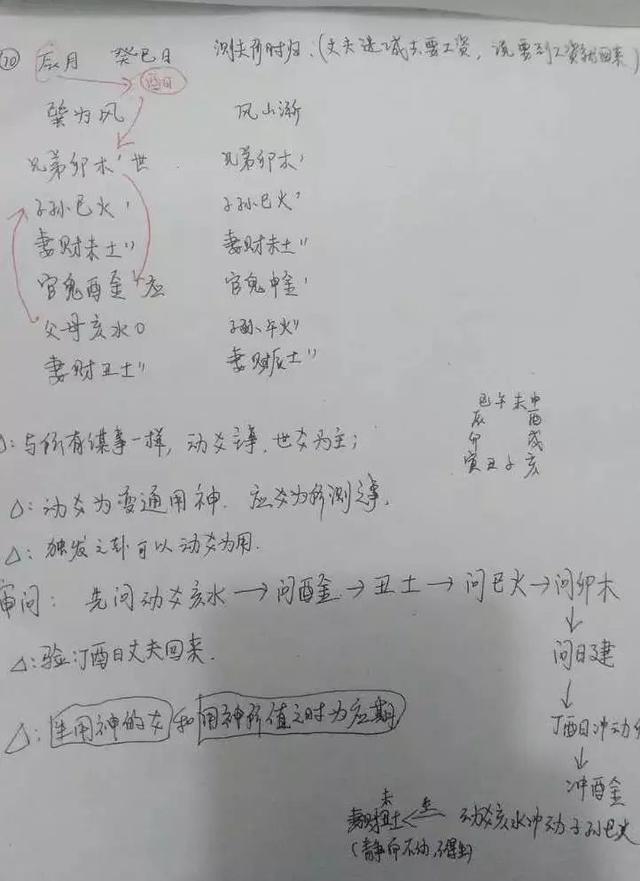 ⑳ 辰月 癸巳日 测夫何时归:(丈夫进城去要工资,说要到工资就回来)
巽为风 风山渐
兄弟卯木' 世 兄弟卯木'
子孙巳火' 子孙巳火'
妻财未土" 妻财未土"
官鬼酉金' 应 官鬼申金'
父母亥水O 子孙午火"
妻财丑土" 妻财辰土"
巳午未申
辰 酉
卯 戌
寅丑子亥
△:与所有谋事一样,动爻主事,世爻为主;
△:动爻为变通用神.应爻为所测之事.
△:独发之卦可以动爻为用.
审问:先问动爻亥水→问酉金→丑土→问巳火→问卯木
↓
△:验:丁酉日丈夫回来. 问日建
↓
△:生用神的爻和用神所值之时为应期 丁酉日冲动
↓
冲酉金
未
妻财丑土 ← 生 动爻亥水冲动子孙巳火